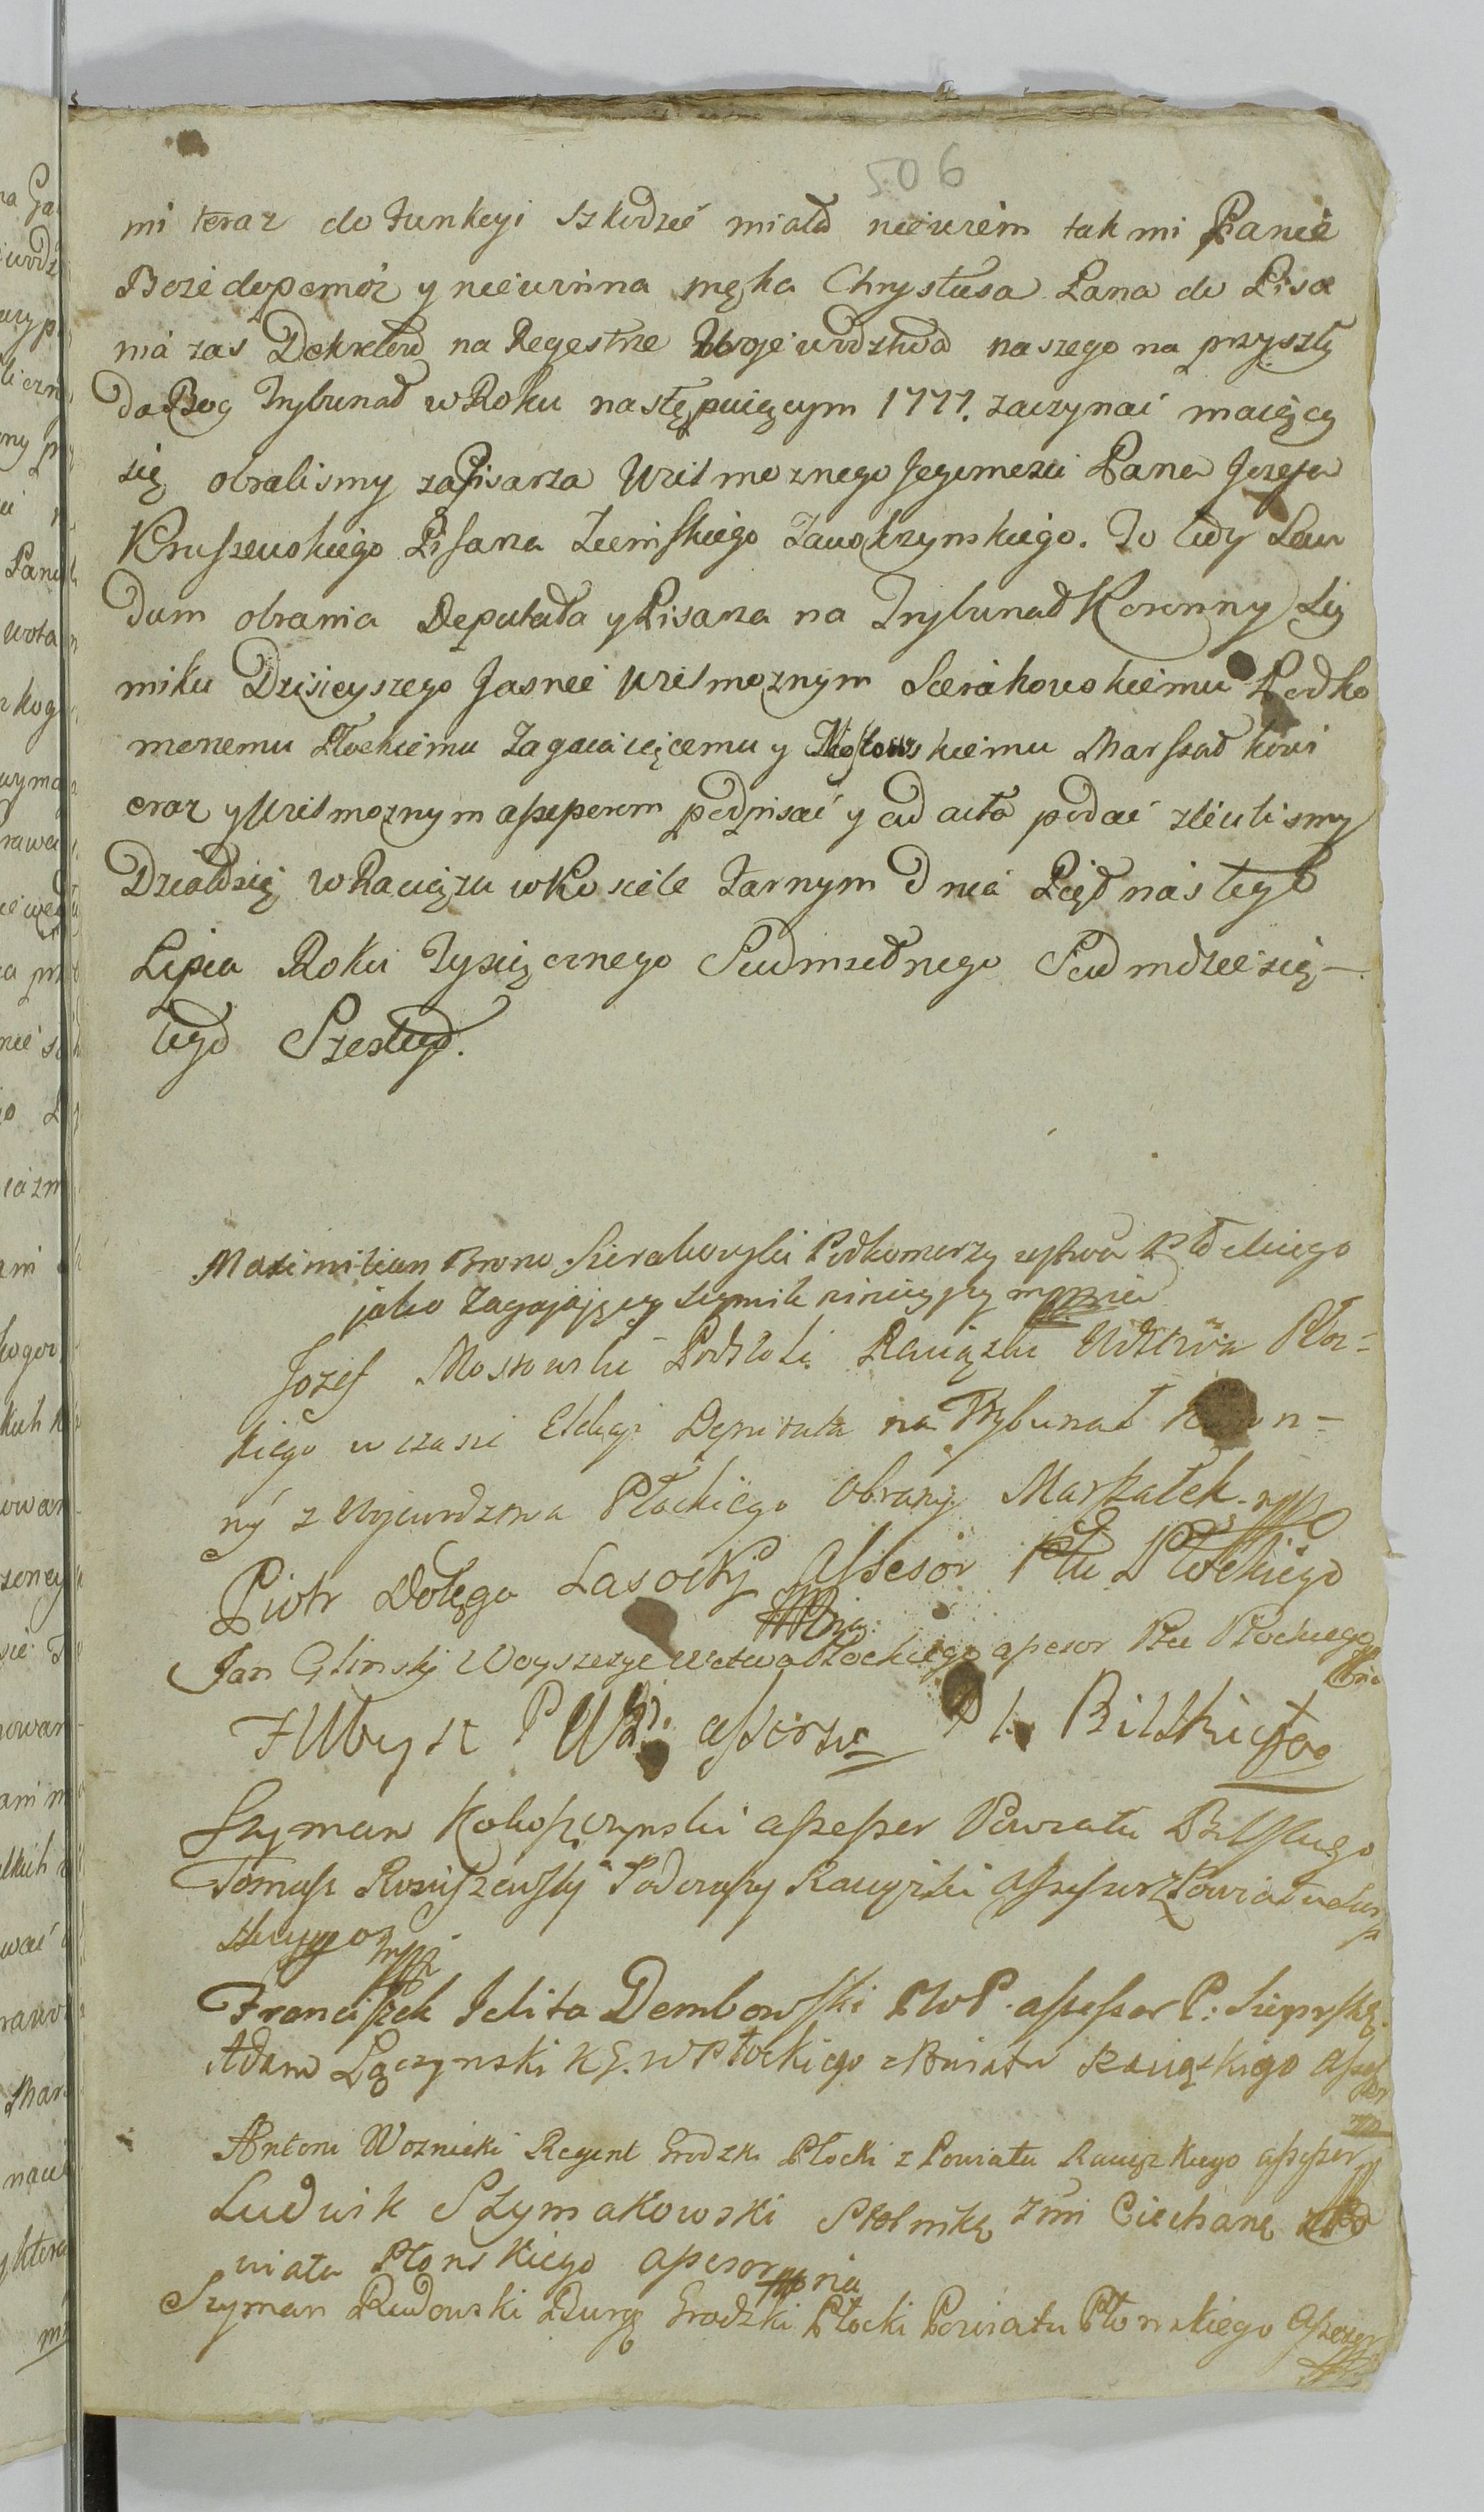 506
mi teraz do Funkcyi szkodzić miało niewiem tak mi Panie
Boże dopomóż y niewinna męka Chrystusa Pana do Pisa
nia zas Dekretow na Regestrze Wojewodztwa naszego na przyszły
da Bog Trybunał w Roku następuiącym 1777. zaczynać maiący
się obralismy za Pisarza Wielmoznego Jegomosci Pana Jozefa
Kruszewskiego Pisarza Ziemskiego Zawskrzynskiego. To tedy Lau
dum obrania Deputata y Pisarza na Trybunał Koronny Sey
miku Dzisieyszego Jasnie Wielmoznym Sierakowskiemu Podko
morzemu Płockiemu Zagaiaiącemu y Mostowskiemu Marszałkowi
oraz y Wielmoznym assessorom podpisać y ad acta podać zleciliśmy
Działo się w Raciążu w Kosciele Farnym Dnia Piętnastego
Lipca Roku Tysiącznego Siedmsetnego Siedmdziesią-
tego Szostego.
Maximilian Brono Sierakowski Podkomorzy wojstwa Płockiego
jako Zagajający Seymik ninieyszy mppria
Jozef Mostowski Podstoli Raciązki Wdztwa Płoc-
kiego w czasie Elekcyi Deputata na Trybunał n-
ny z Wojewodztwa Płockiego Obrany Marszałek mpp
Piotr Dołęga Lasocki Assesor Ptu Płockiego
mppria
Jan Glinski Woyszczyc Wdztwa Płockiego assesor Ptu Płockiego
assesor P Bilskiego
Szyman Kokoszczynski assessor Powiatu Bilskiego
Tomasz Rosciszewski Podczaszy Raciązki assessor z Powiatu
mpp
Franciszek Jelita Dembowski PWP. assessor P:
Adam Łączynski KG. W Płockiego z Powiatu Raciązkiego assess
or
Antoni Woznicki Regent Grodzki Płocki z Powiatu Raciązkiego assessor
Ludwik Szymakowski Stolnikę Zmi Ciechanę z Po
wiatu Płonskiego assesor mpria
Szyman Rudowski Burgę Grodzki Płocki Powiatu Płonskiego assesor